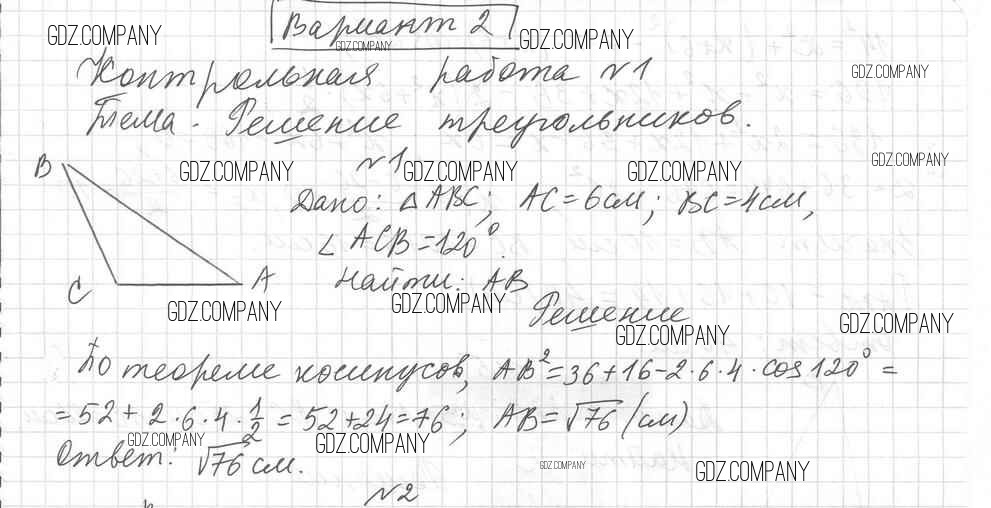 Вариант 2
GDZ.COMPANY
GDZ.COMPANY
GDZ.COMPANY
Контрольная работа №1
GDZ.COMPANY
Тема. Решение треугольников.
№1
GDZ.COMPANY
B
GDZ.COMPANY
GDZ.COMPANY
GDZ.COMPANY
Дано: △ABC; AC=6см; BC=4см,
∠ACB=120°.
C
A
Найти: AB
GDZ.COMPANY
GDZ.COMPANY
Решение
GDZ.COMPANY
GDZ.COMPANY
По теореме косинусов, AB²=36+16-2·6·4·cos120°=
=52+2·6·4·1/2=52+24=76; AB=√76 (см)
GDZ.COMPANY
GDZ.COMPANY
Ответ: √76 см.
GDZ.COMPANY
GDZ.COMPANY
№2